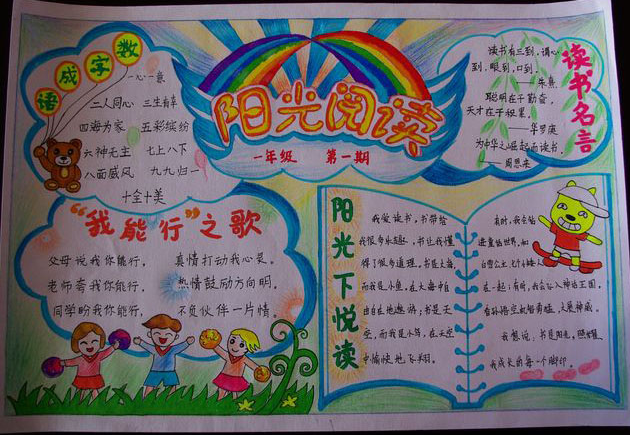 数字成语
一心一意
二人同心 三生有幸
四海为家 五彩缤纷
六神无主 七上八下
八面威风 九九归一
十全十美
阳光阅读
一年级 第一期
读书名言
读书有三到，谓心
到，眼到，口到。
——朱熹
聪明在于勤奋，
天才在于积累。
——华罗庚
为中华之崛起而读书。
——周恩来
“我能行”之歌
父母说我你能行，真情打动我心灵。
老师夸我你能行，热情鼓励方向明。
同学盼我你能行，不负伙伴一片情。
阳光下悦读
我爱读书，书带给
我很多乐趣，书让我懂
得了很多道理。书是大海，
而我是小鱼，在大海中自
由自在地遨游；书是天
空，而我是小鸟，在天空
中愉快地飞翔。
有时，我会钻
进童话世界，和
白雪公主、七个小矮人
在一起；有时，我会钻入神话王国，
看孙悟空
我想说，书是阳光，照耀
我成长的每一个脚印。